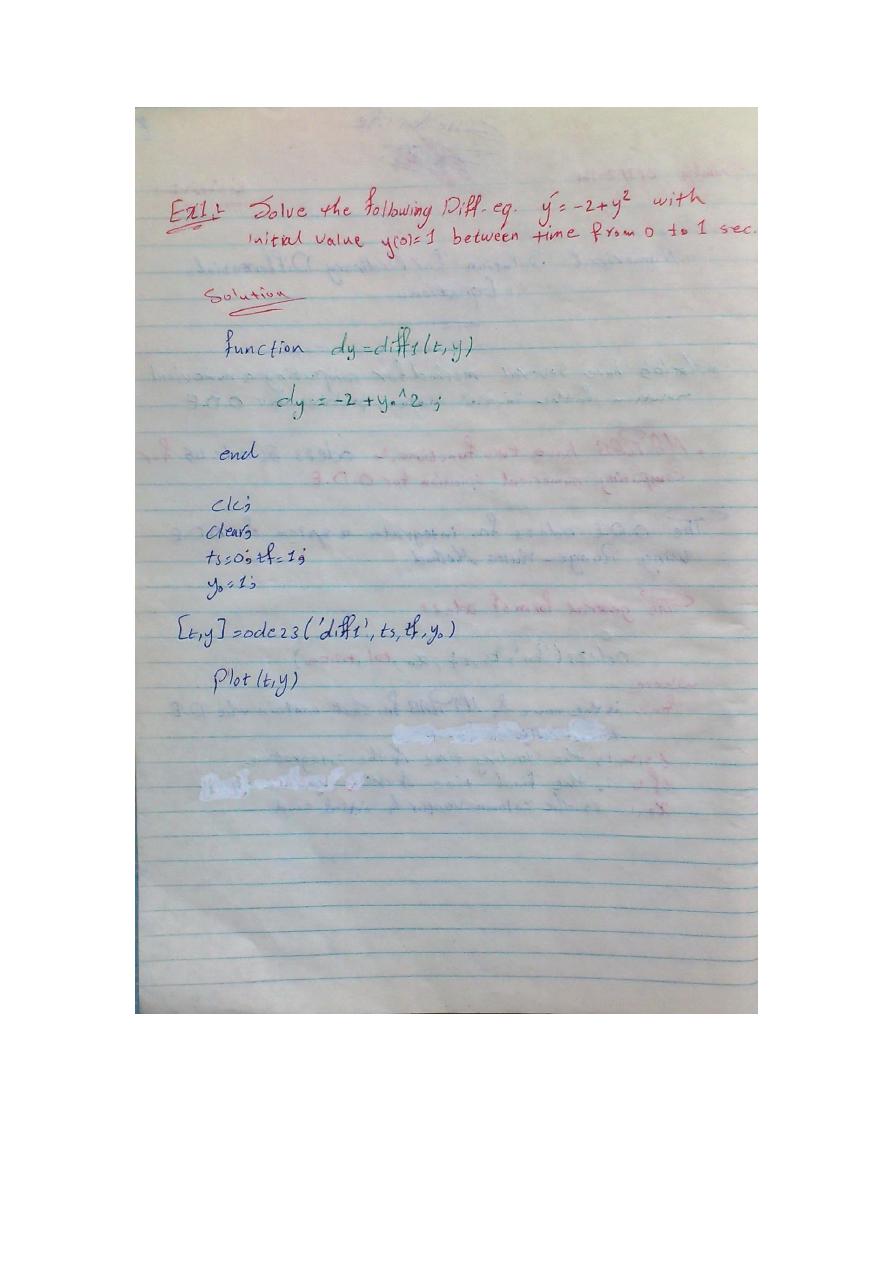 Ex1:- Solve the following Diff. eq. y' = -2+y² with
initial value y(0)=1 between time from 0 to 1 sec.
Solution
function dy=diff1(t,y)
dy = -2 + y.^2;
end
clc;
clear;
ts=0; tf=1;
y₀=1;
[t,y]=ode23('diff1', ts, tf, y₀)
Plot(t,y)